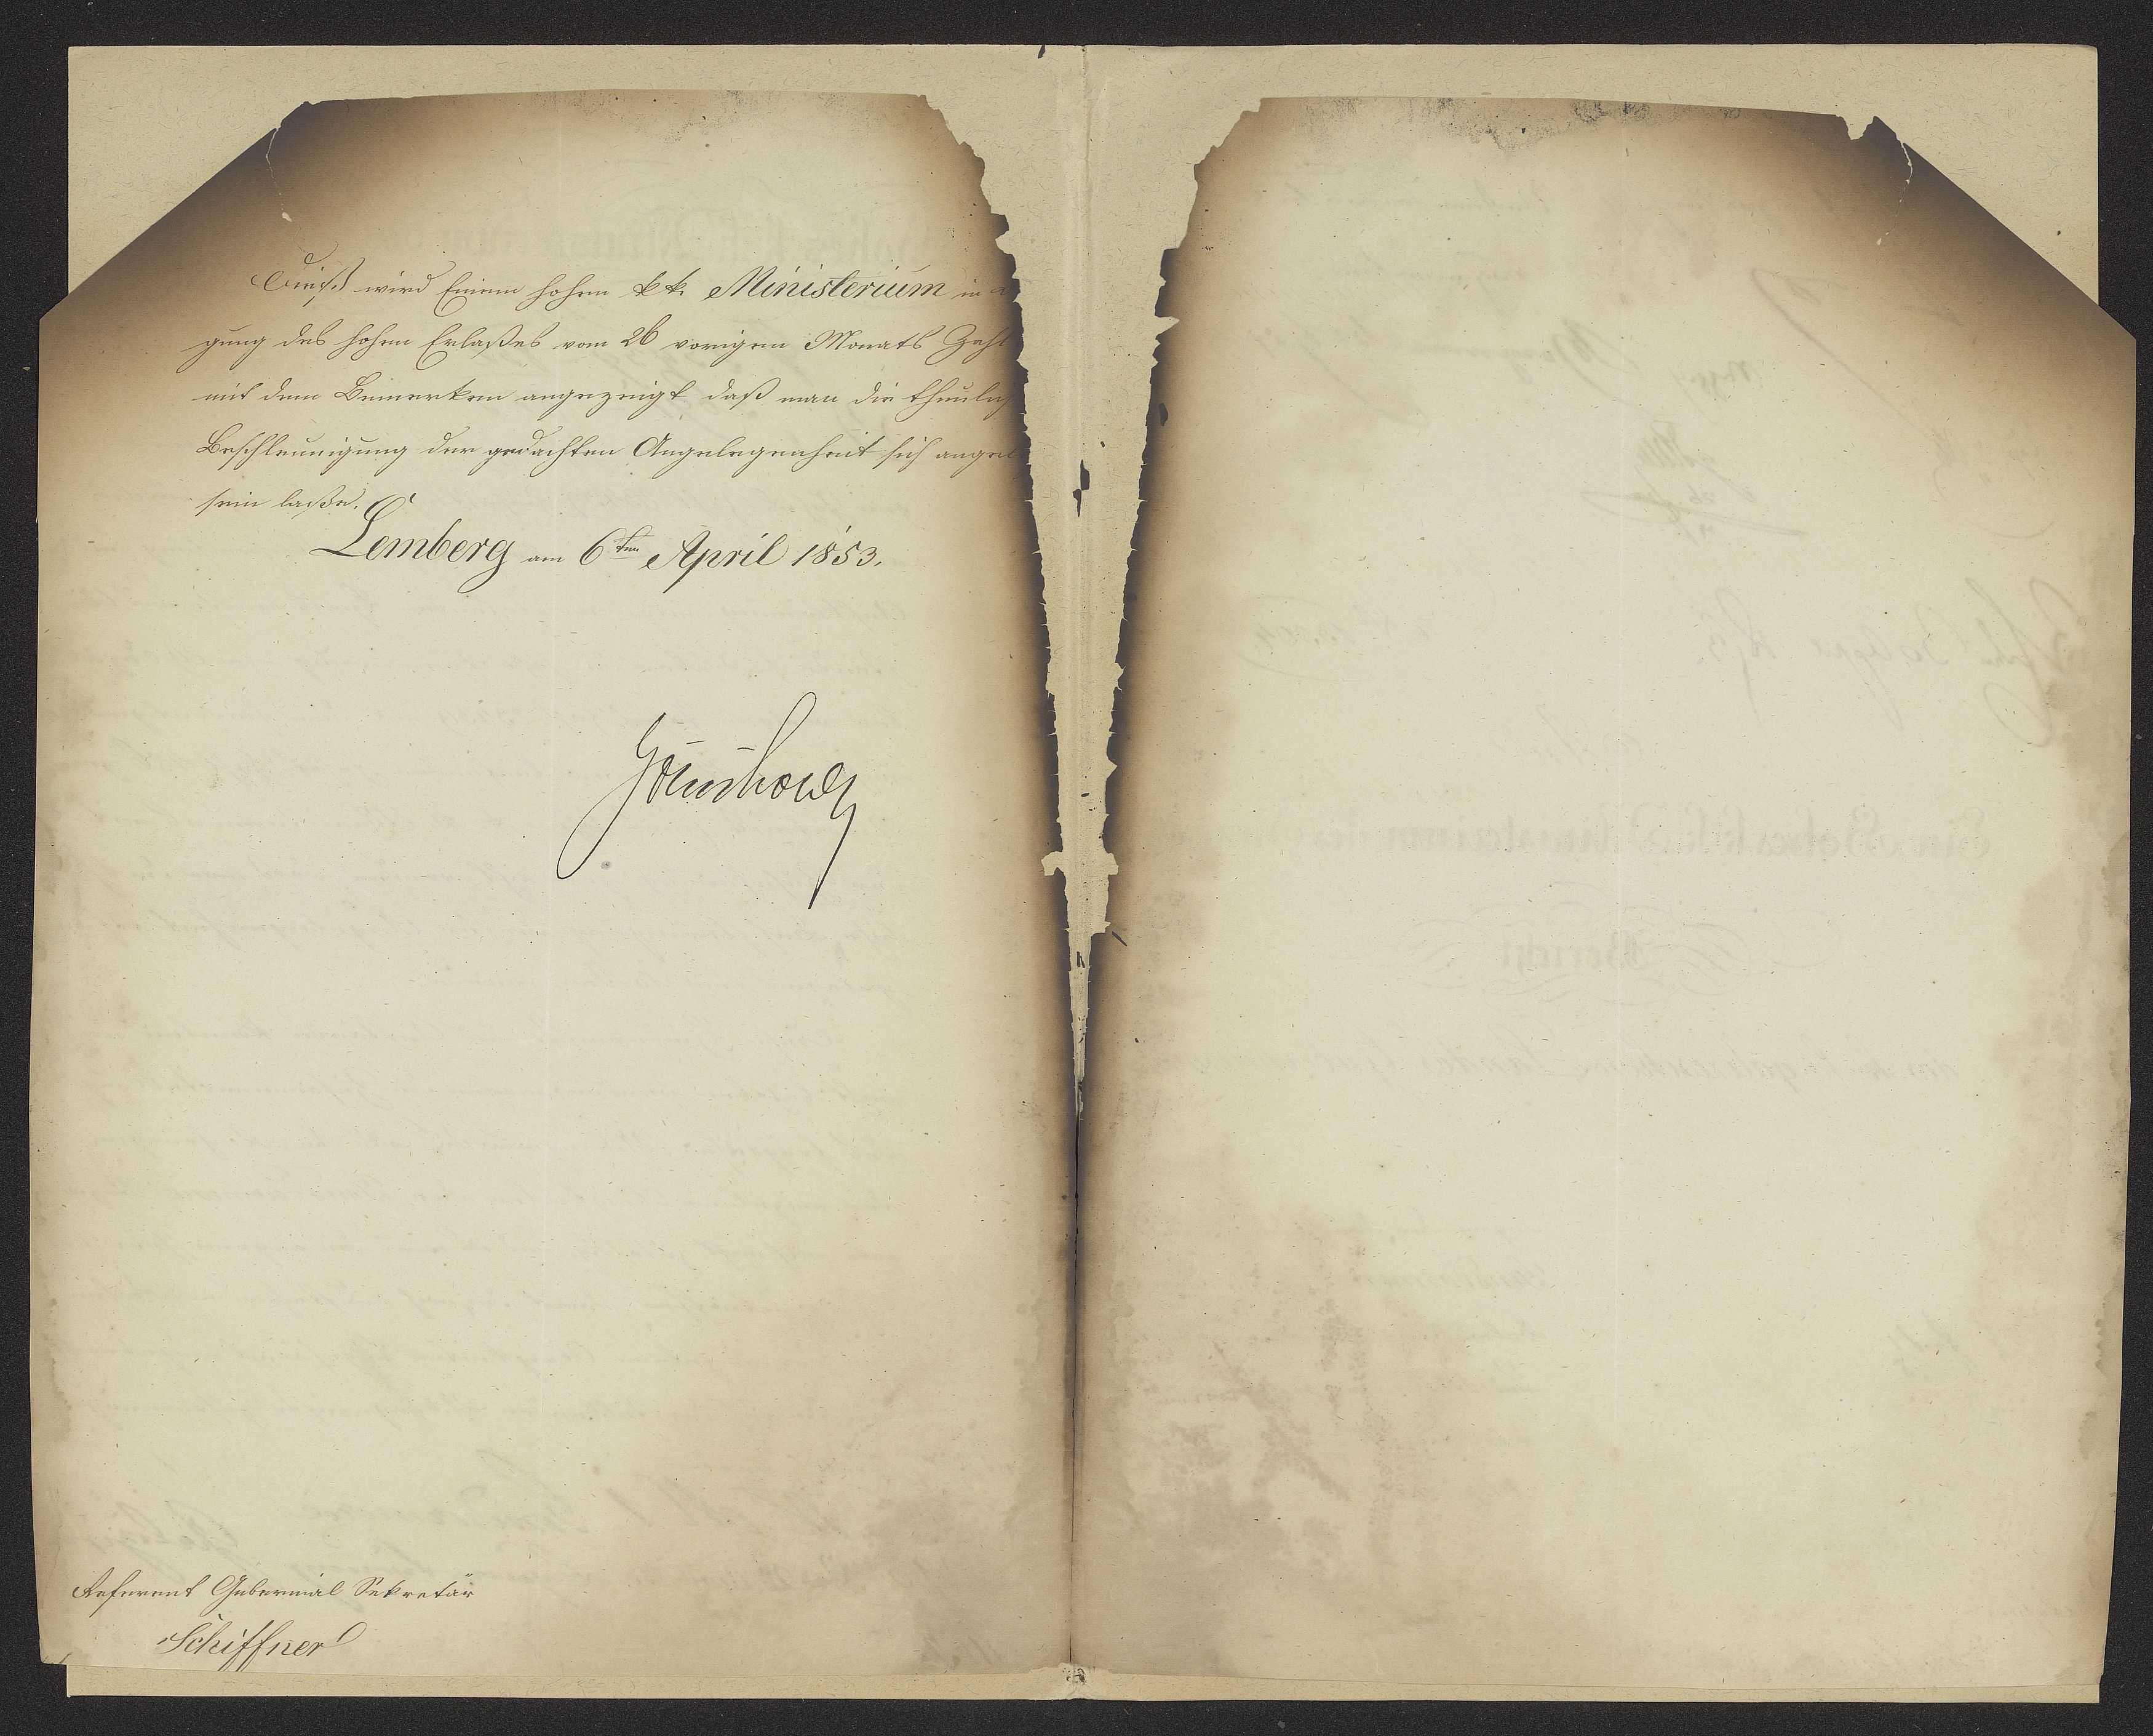 Dieß wird Einem hohen k.k. Ministerium in
gung des hohen Erlaßes vom 26 vorigen Monats Zahl
mit dem Bemerken angezeigt daß man die thunlich
Beschleunigung der gedachten Angelegenheit sich angel
sein laße.
Lemberg am 6ten April 1853.
Gołuchowski
Referent Gubernial Sekretär
Schiffner